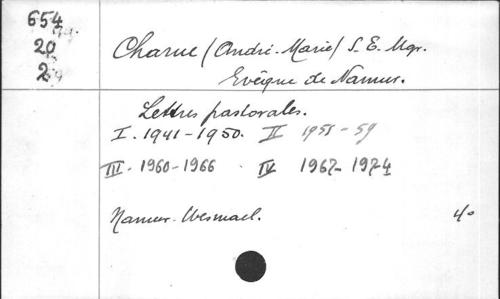 654
20
2
Charue (André-Marie) S. E. Mgr.
Evêque de Namur.
Lettres pastorales.
I. 1941-1950. II 1951-59
III. 1960-1966 IV 1967-1974
Namur. Wesmael. 4°